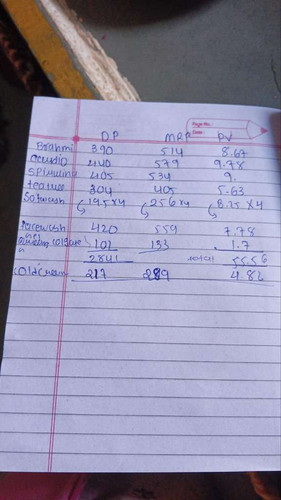 Page No.
Date
DP MRP PV
Brahmi 390 514 8.67
Cardio 440 579 9.78
Spirulina 405 534 9.
304 405 5.63
195x4 256x4 8.25 x 4
Facewash 420 559 7.78
101 133 1.7
2841 total 55.56
Cold Cream 217 289 4.82